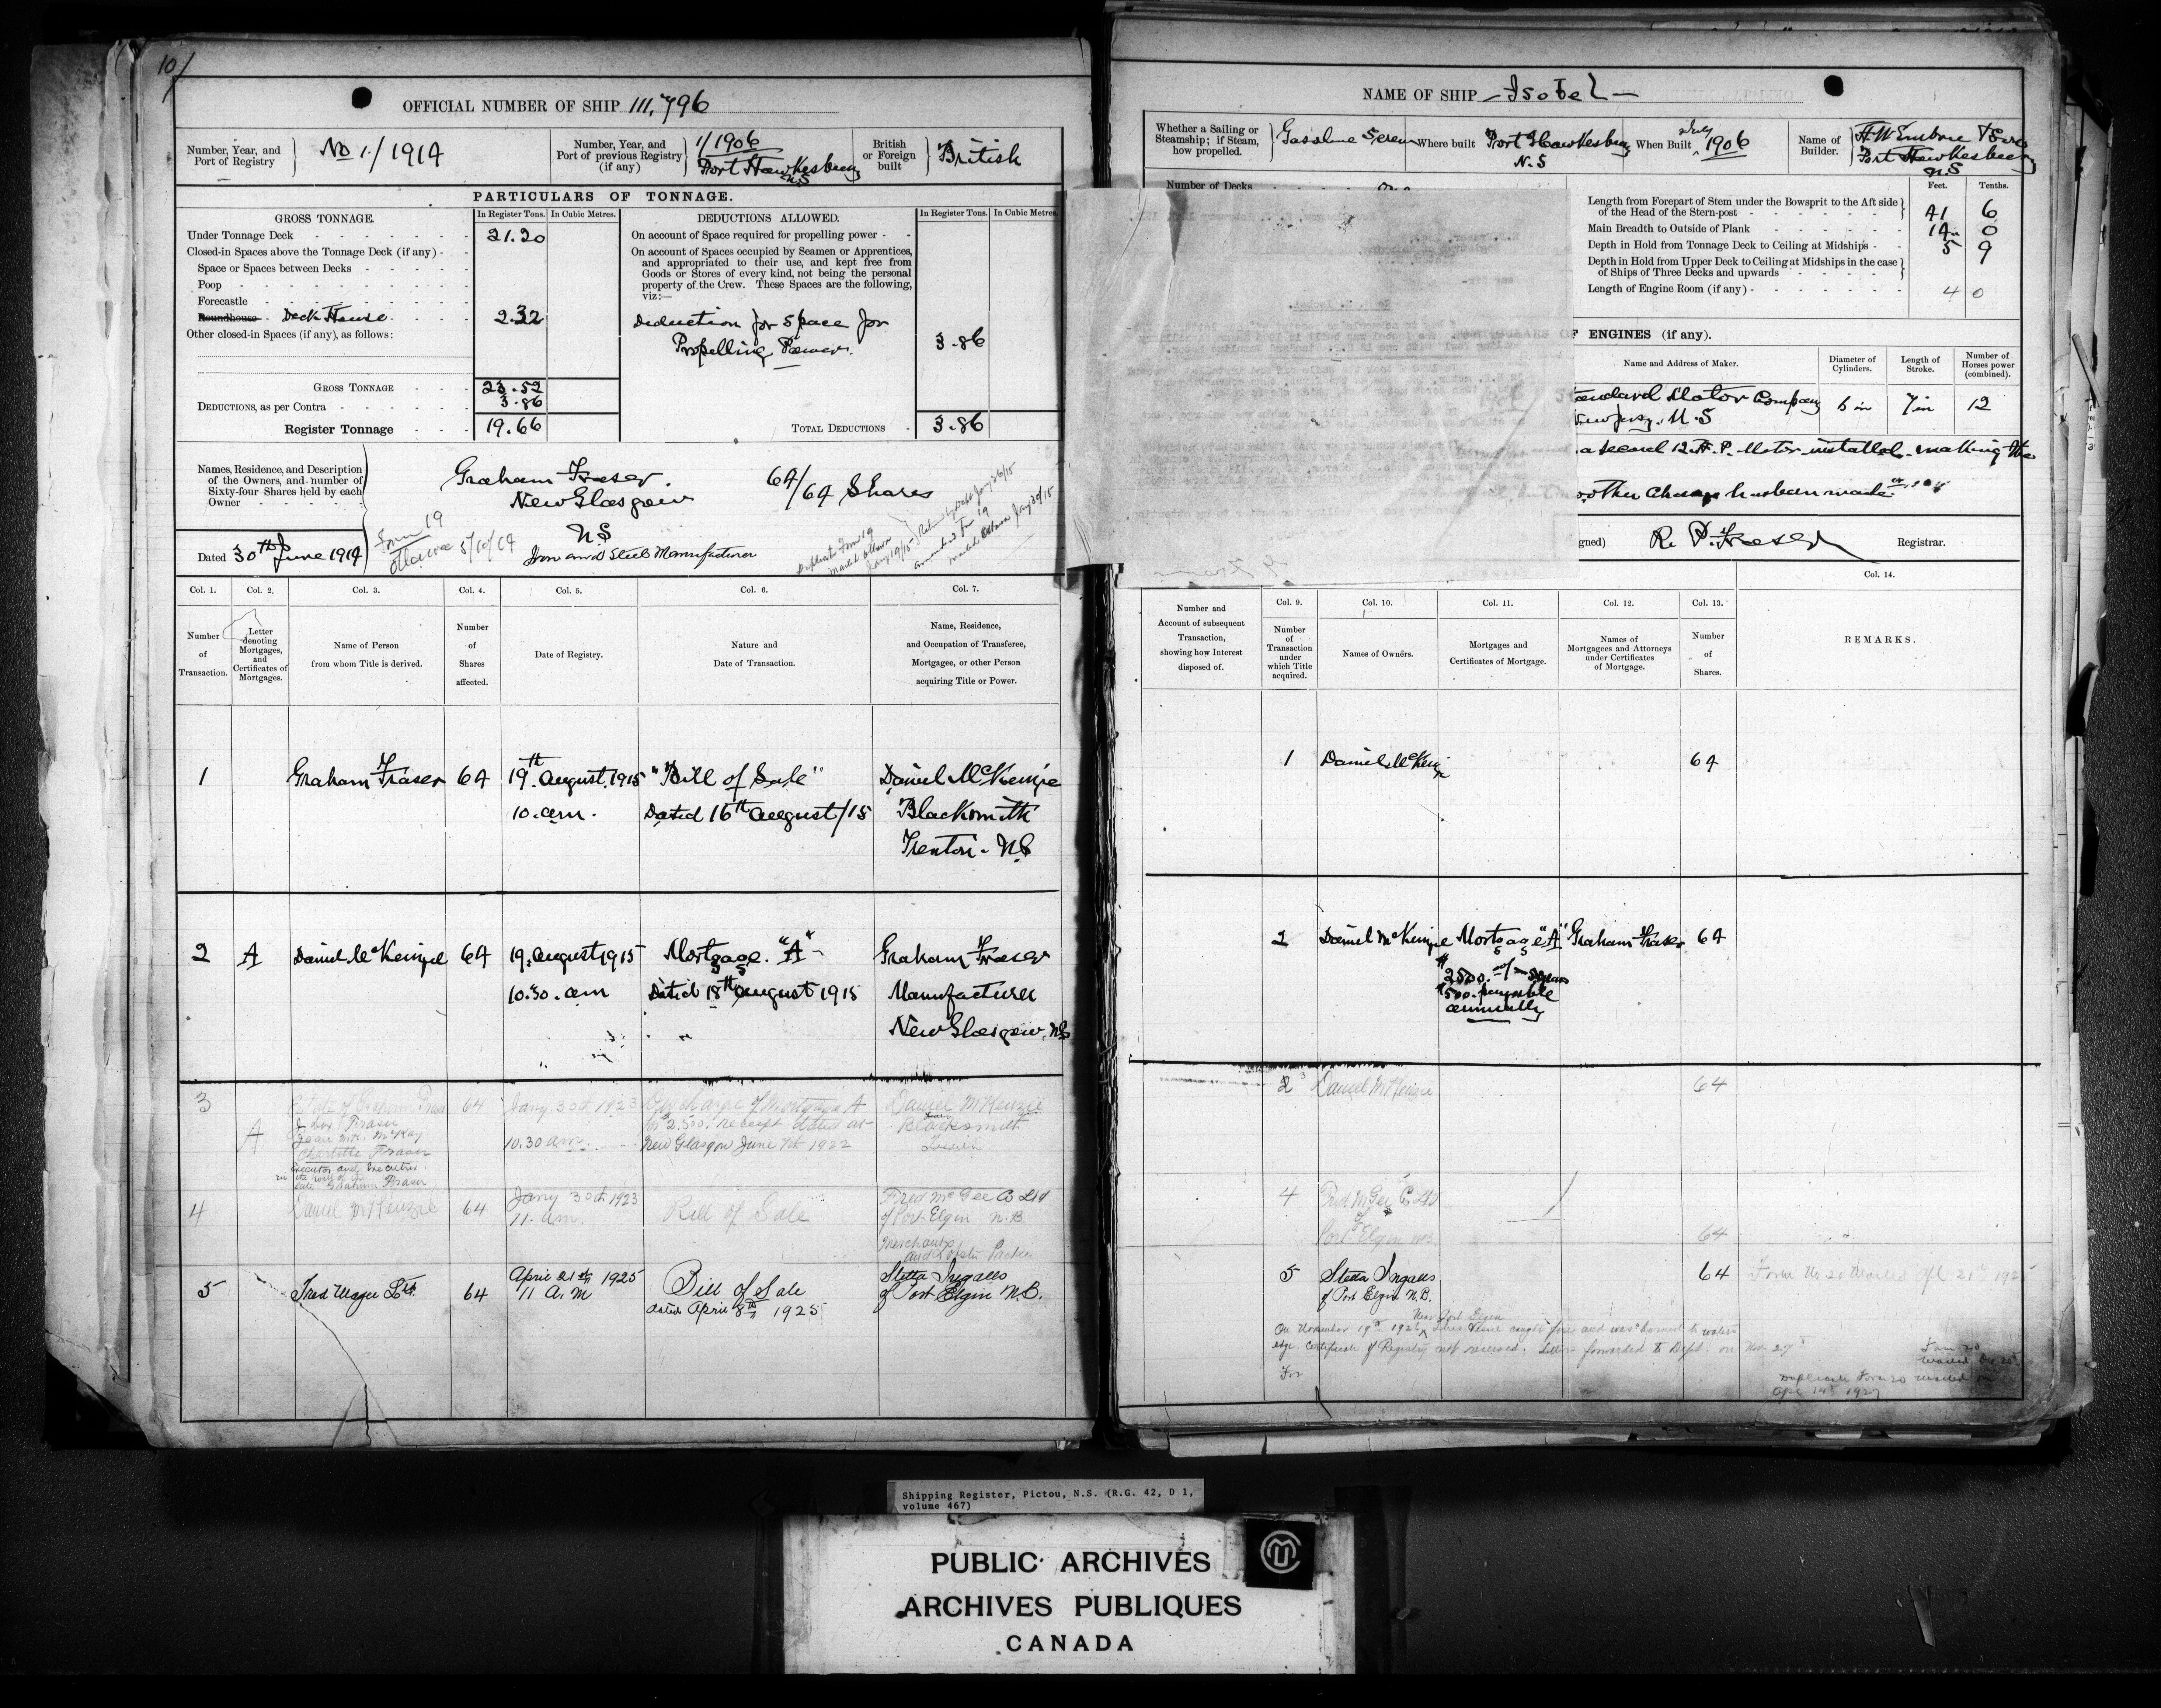 10/
OFFICIAL NUMBER OF SHIP 111,796
Number, Year, and Port of Registry
No 1/1914
Number, Year, and Port of previous Registry (if any)
1/1906
Port Hawkesbury
N.S
British or Foreign built
British
PARTICULARS OF TONNAGE.
GROSS TONNAGE.
In Register Tons.
In Cubic Metres.
DEDUCTIONS ALLOWED.
In Register Tons.
In Cubic Metres.
Under Tonnage Deck
21.20
Closed-in Spaces above the Tonnage Deck (if any)
Space or Spaces between Decks
Poop
Forecastle
Roundhouse Deck House
2.32
Other closed-in Spaces (if any), as follows:
GROSS TONNAGE
23.52
DEDUCTIONS, as per Contra
3.86
Register Tonnage
19.66
On account of Space required for propelling power
On account of Spaces occupied by Seamen or Apprentices,
and appropriated to their use, and kept free from
Goods or Stores of every kind, not being the personal
property of the Crew. These Spaces are the following,
viz:—
Deduction for Space for
Propelling Power.
3.86
TOTAL DEDUCTIONS
3.86
Names, Residence, and Description
of the Owners, and number of
Sixty-four Shares held by each
Owner
Graham Fraser.
New Glasgow
N.S
Iron and Steel Manufacturer
64/64 Shares
Dated 30th June 1914
Form 19
Ottawa 5/10/14
Duplicate Form 19
Mailed Ottawa
Jany 19/15
Col. 1.
Col. 2.
Col. 3.
Col. 4.
Col. 5.
Col. 6.
Col. 7.
Number of Transaction.
Letter denoting Mortgages, and Certificates of Mortgages.
Name of Person from whom Title is derived.
Number of Shares affected.
Date of Registry.
Nature and Date of Transaction.
Name, Residence, and Occupation of Transferee, Mortgagee, or other Person acquiring Title or Power.
1
Graham Fraser
64
19th August. 1915
10. am.
"Bill of Sale"
Dated 16th August/15
Daniel McKenzie
Blacksmith
Trenton. N.S
2
A
Daniel McKenzie
64
19. August 1915
10.30. am
Mortgage. "A"
Dated 18th August 1915
Graham Fraser
Manufacturer
New Glasgow. N.S
3
A
Estate of Graham Fraser
Fraser
Jean McKay
Charlotte Fraser
Executor and Executrix
late Graham Fraser
64
Jany 30th 1923
10.30 am.
Discharge of Mortgage A
for $2,500. receipt dated at
New Glasgow June 7th 1922
Daniel McKenzie
Blacksmith
4
Daniel McKenzie
64
Jany 30th 1923
11. am.
Bill of Sale
Fred McGee Co Ltd
of Port Elgin N.B.
Merchants
and Lobster Packers
5
Fred Magee Ltd.
64
April 21st 1925
11 A.M
Bill of Sale
dated April 8th 1925
Stetta Ingalls
of Port Elgin N.B.
NAME OF SHIP - Isobel -
Whether a Sailing or Steamship; if Steam, how propelled.
Gasolene Screw
Where built
Port Hawkesbury
N.S
When Built
July 1906
Name of Builder.
H W Embree & Sons
Port Hawkesbury
N.S
Number of Decks
Feet.
Tenths.
Length from Forepart of Stem under the Bowsprit to the Aft side
of the Head of the Stern-post
41 6
Main Breadth to Outside of Plank
14 0
Depth in Hold from Tonnage Deck to Ceiling at Midships
5 9
Depth in Hold from Upper Deck to Ceiling at Midships in the case
of Ships of Three Decks and upwards
Length of Engine Room (if any)
4 0
OF ENGINES (if any).
Name and Address of Maker.
Diameter of Cylinders.
Length of Stroke.
Number of Horses power (combined).
Standard Motor Company
New Jersey. U.S
6 in
7 in
12
a second 12 H.P. Motor installed. making the
other change has been made
R. P. Fraser
Registrar.
Number and Account of subsequent Transaction, showing how Interest disposed of.
Col. 9.
Col. 10.
Col. 11.
Col. 12.
Col. 13.
Col. 14.
Number of Transaction under which Title acquired.
Names of Owners.
Mortgages and Certificates of Mortgage.
Names of Mortgagees and Attorneys under Certificates of Mortgage.
Number of Shares.
REMARKS.
1
Daniel McKenzie
64
2
Daniel McKenzie
Mortgage "A"
$2500.
$500. payable
annually
Graham Fraser
64
2 3
Daniel McKenzie
64
4
Fred McGee Co Ltd
of
Port Elgin N.B.
64
5
Stetta Ingalls
of Port Elgin N.B.
64
Form No 20 Mailed Apl 21st 1925
Near Port Elgin
On November 19th 1926 this vessel caught fire and was burned to waters
edge. Certificate of Registry not received. Letter forwarded to Dept. on Nov. 27
Form 20
Duplicate Form 20 mailed on
Apl 14th 1927
Shipping Register, Pictou, N.S. (R.G. 42, D 1,
volume 467)
PUBLIC ARCHIVES
ARCHIVES PUBLIQUES
CANADA